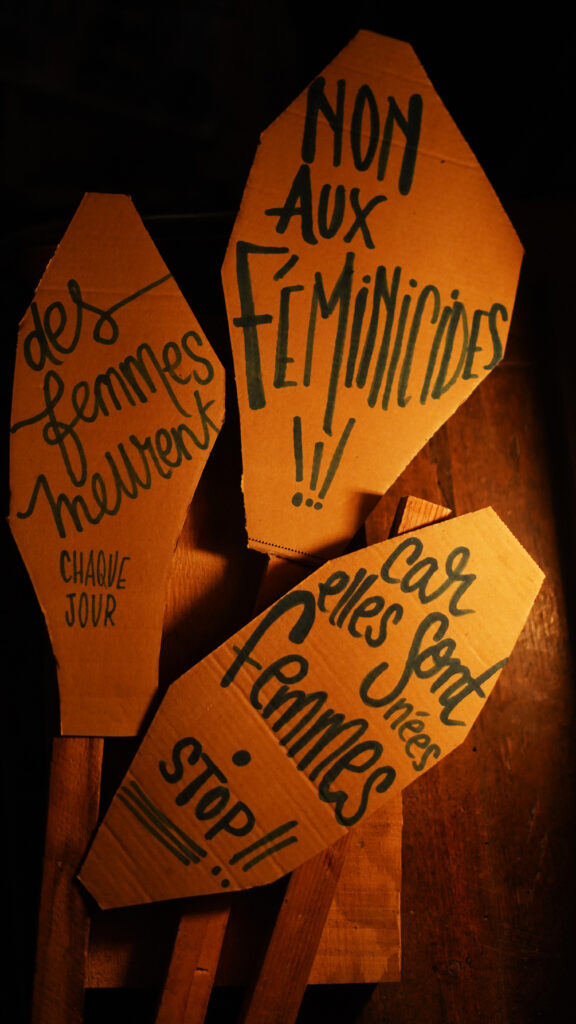 NON
AUX
FÉMINICIDES
!!!
des
femmes
meurent
CHAQUE
JOUR
car
elles sont
nées
femmes
STOP !!